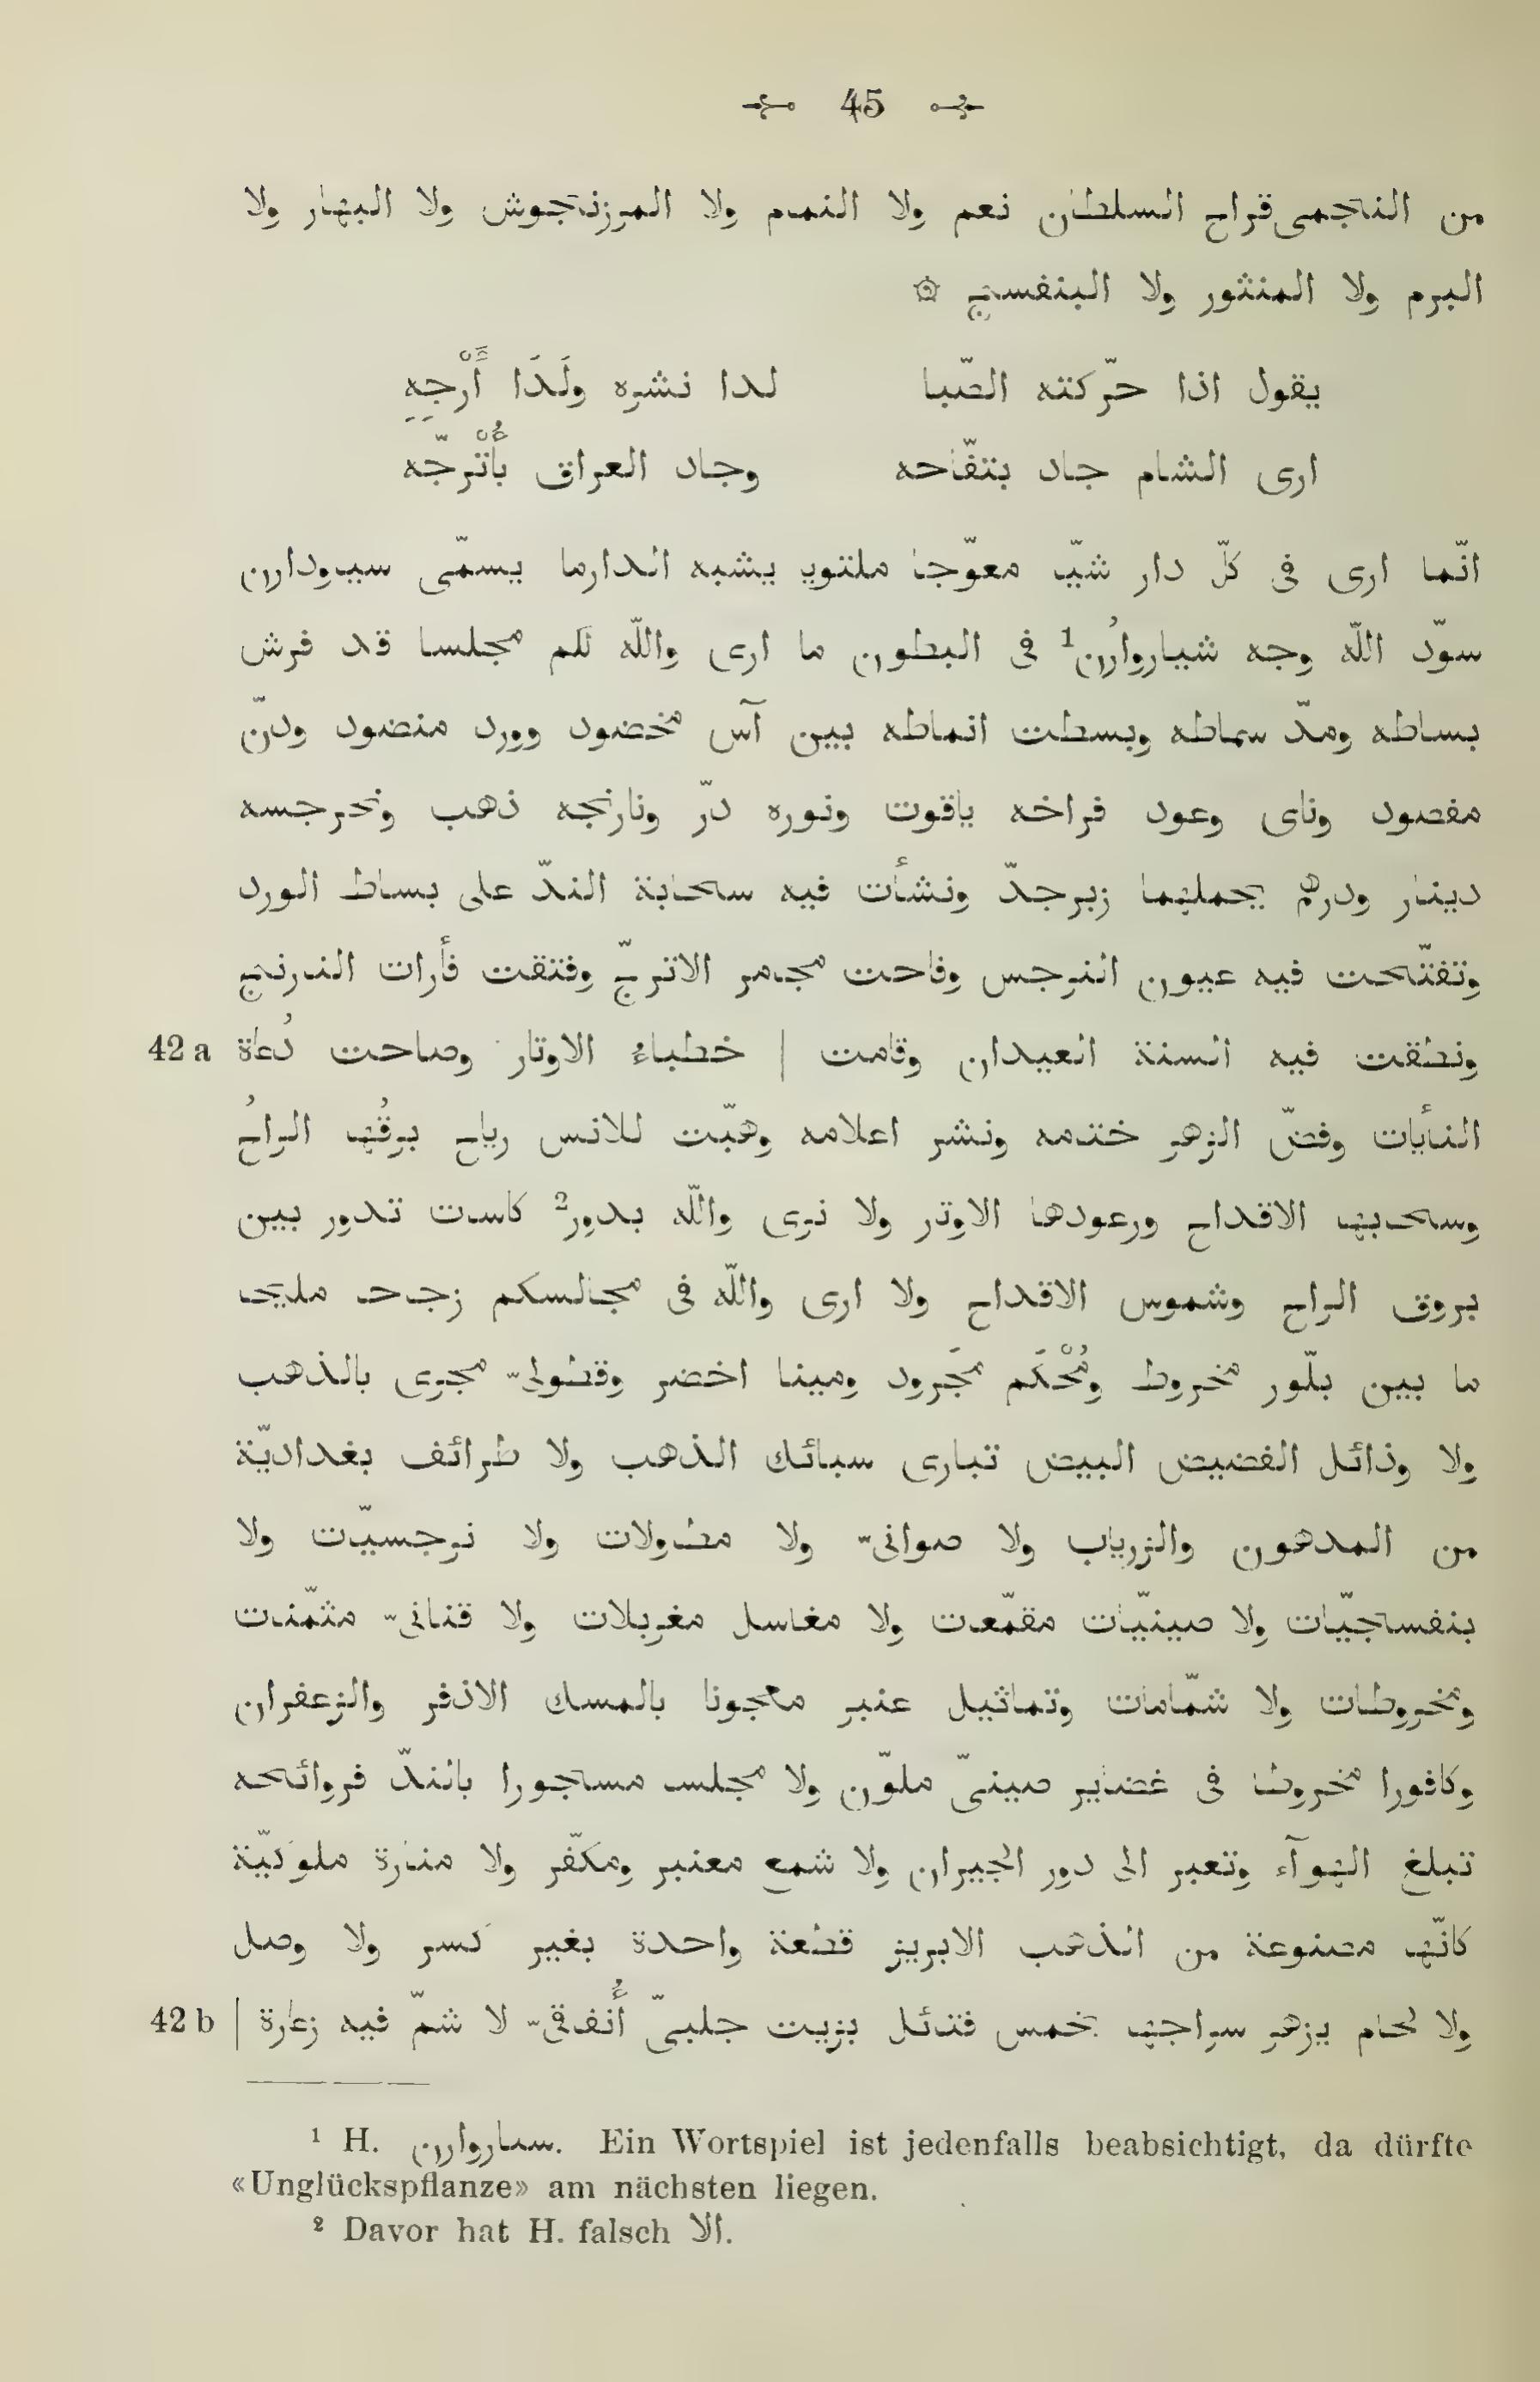 45
من النجمى قراح السلطان نعم ولا النمام ولا المرزنجوش ولا البهار ولا
البرم ولا المنثور ولا البنفسج ۞
يقول اذا حرّكته الصّبا لدا نشره ولَدَا أَرْجِهِ
ارى الشام جاد بتفّاحه وجاد العراق بأُتْرجّه
انّما ارى فى كلّ دار شيّا معوّجا ملتويا يشبه اندارما يسمّى سيوداران
سوّد اللّه وجه شياروارُن¹ فى البطون ما ارى واللّه لكم مجلسا قد فرش
بساطه ومدّ سماطه وبسطت انماطه بين آس مخضود وورد منضود ودنّ
مفصود وناى وعود فراخه ياقوت ونوره درّ ونارنجه ذهب ونرجسه
دينار ودرهم يحملهما زبرجدّ ونشأت فيه سحابة الندّ على بساط الورد
وتفتّحت فيه عيون النرجس وفاحت مجامر الاترجّ وفتقت فأرات النارنج
42 a ونطقت فيه السنة العيدان وقامت | خطباءُ الاوتار وصاحت دُعاة
النأيات وفضّ الزهر ختامه ونشر اعلامه وهبّت للانس رياح برقُها الراحُ
وسحابها الاقداح ورعودها الاوتار ولا نرى واللّه بدور² كاسات تدور بين
بروق الراح وشموس الاقداح ولا ارى واللّه فى مجالسكم زجاجا مليحا
ما بين بلّور مخروط ومُحْكَم مَجرود ومينا اخضر وقطولىّ مجرى بالذهب
ولا وذائل الفضيض البيض تبارى سبائك الذهب ولا طرائف بغداديّة
من المدهون والزرياب ولا صوانىّ ولا مطولات ولا نرجسيّات ولا
بنفسجيّات ولا صينيّات مقمّعات ولا مغاسل مغربلات ولا قنانىّ مثمّنات
ومخروطات ولا شمّامات وتماثيل عنبر معجونا بالمسك الاذفر والزعفران
وكافورا مخروطا فى غضاير صينىّ ملوّن ولا مجلسا مسجورا بالندّ فروائحه
تبلغ الهوآء وتعبر الى دور الجيران ولا شمع معنبر ومكفّر ولا منارة ملوكيّة
كانّها مصنوعة من الذهب الابريز قطعة واحدة بغير كسر ولا وصل
42 b ولا لحام يزهر سراجها بخمس فتائل بزيت جلبىّ أُنفاقىّ لا شمّ فيه زعارة |
¹ H. سىاروارن. Ein Wortspiel ist jedenfalls beabsichtigt, da dürfte
«Unglückspflanze» am nächsten liegen.
² Davor hat H. falsch الا.